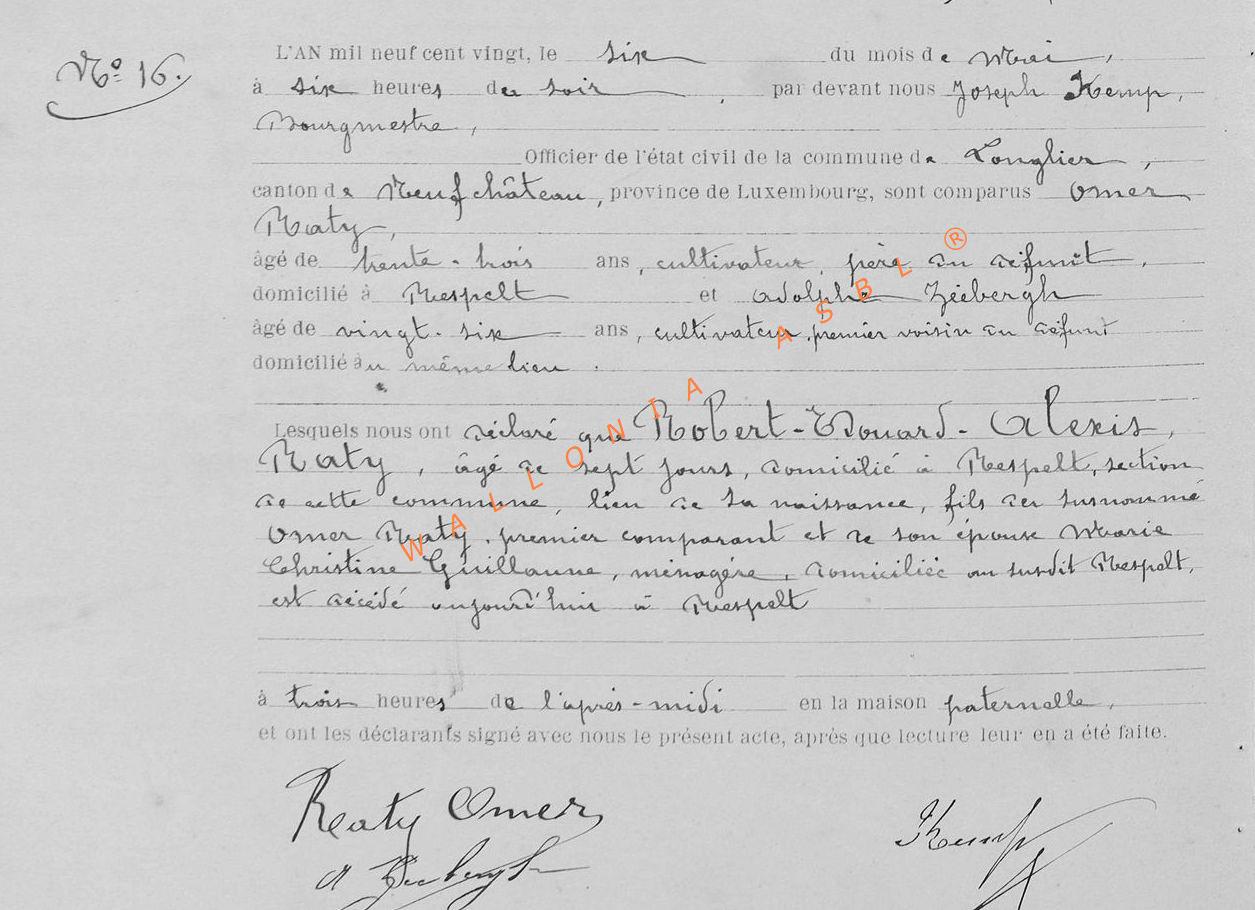 No 16.
L'AN mil neuf cent vingt, le six du mois de Mai,
à six heures du soir, par devant nous Joseph Kemp,
Bourgmestre,
Officier de l'état civil de la commune de Longlier,
canton de Neufchâteau, province de Luxembourg, sont comparus Omer
Raty,
âgé de trente-trois ans, cultivateur, père du défunt,
domicilié à Respelt et Adolphe
âgé de vingt-six ans, cultivateur, premier voisin du défunt
domicilié au même lieu.
Lesquels nous ont déclaré que Robert-Edouard-Alexis,
Raty, âgé de sept jours, domicilié à Respelt, section
de cette commune, lieu de sa naissance, fils du susnommé
Omer Raty, premier comparant et de son épouse Marie
Christine Guillaume, ménagère, domiciliée au susdit Respelt,
est décédé aujourd'hui à Respelt
à trois heures de l'après-midi en la maison paternelle,
et ont les déclarants signé avec nous le présent acte, après que lecture leur en a été faite.
Raty Omer
Kemp
WALLONIA ASBL ®